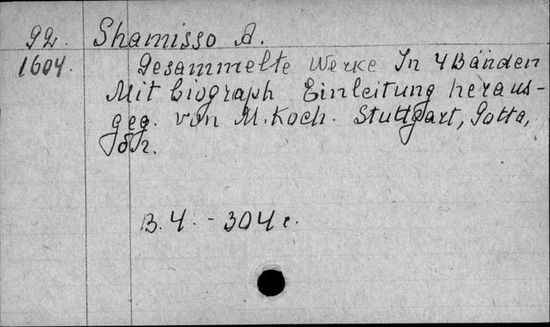 92. Shamisso A.
1604. Gesammelte Werke In 4 Bänden
Mit biograph Einleitung heraus-
geg. von M. Koch. Stuttgart, Gotta,
B. 4. - 304 c.